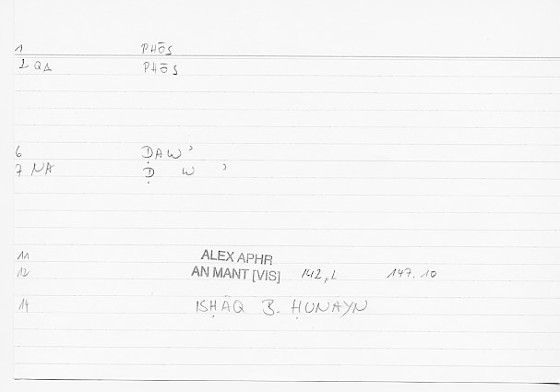 1 PHŌS
2 QA PHŌS
6 ḌAWʾ
7 NA Ḍ W ʾ
11 ALEX APHR
12 AN MANT [VIS] 142,2 147.10
14 ISḤĀQ B. ḤUNAYN